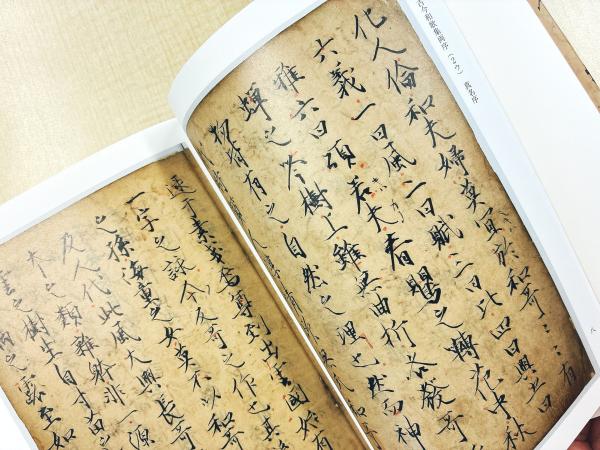 古今和歌集両序(2ウ) 真名序
化人倫和夫婦莫宜於和哥〻〻有
六義一曰風二曰賦三曰比四曰興五曰
雅六曰頌若夫春鶯之囀花中秋
蟬之吟樹上雖無曲折各發哥
物皆有之自然之理也然而神
八
逮于素戔烏尊到出雲國始有
一字之詠今反哥之作也其後
之孫海童之女莫不以和哥
及人代此風大興長哥
本之類雜躰非一源
雲之樹生自寸苗之
之露至如